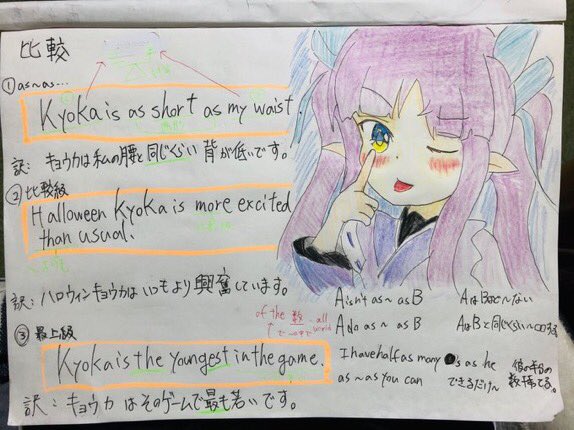 比較
① as~as…
Kyoka is as short as my waist.
訳: キョウカは私の腰と同じくらい背が低いです。
② 比較級
Halloween Kyoka is more excited
than usual.
訳: ハロウィンキョウカはいつもより興奮しています。
③ 最上級
of the 数 all
world
Kyoka is the youngest in the game.
訳: キョウカはそのゲームで最も若いです。
A isn't as ~ as B AはBほど~ない
A do as ~ as B AはBと同じくらい~
I have half as many s as he 彼の半分の
数持ってる。
as ~ as you can できるだけ~